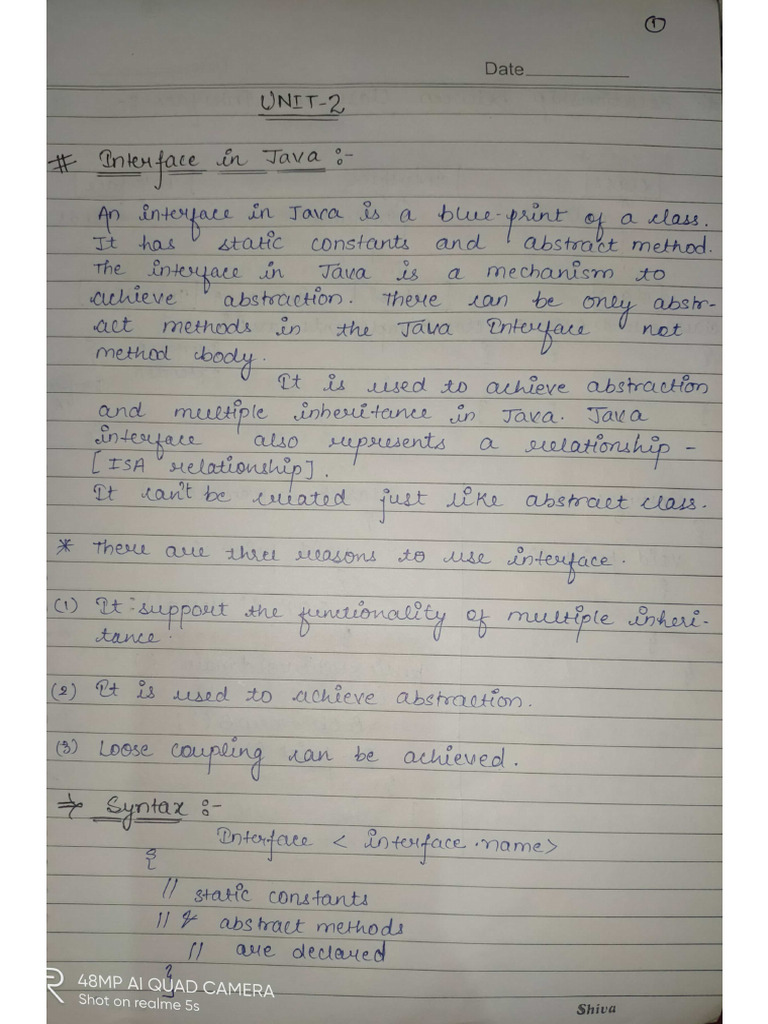 1
Date
UNIT-2
# Interface in Java :-
An interface in Java is a blue-print of a class.
It has static constants and abstract method.
The interface in Java is a mechanism to
achieve abstraction. There can be only abstr-
act methods in the Java Interface not
method body.
It is used to achieve abstraction
and multiple inheritance in Java. Java
interface also represents a relationship -
[ISA relationship].
It can't be created just like abstract class.
* There are three reasons to use interface.
(1) It support the functionality of multiple inheri-
tance.
(2) It is used to achieve abstraction.
(3) Loose coupling can be achieved.
⇒ Syntax :-
Interface < interface.name>
{
// static constants
// & abstract methods
// are declared
}
R 48MP AI QUAD CAMERA
Shot on realme 5s
Shiva